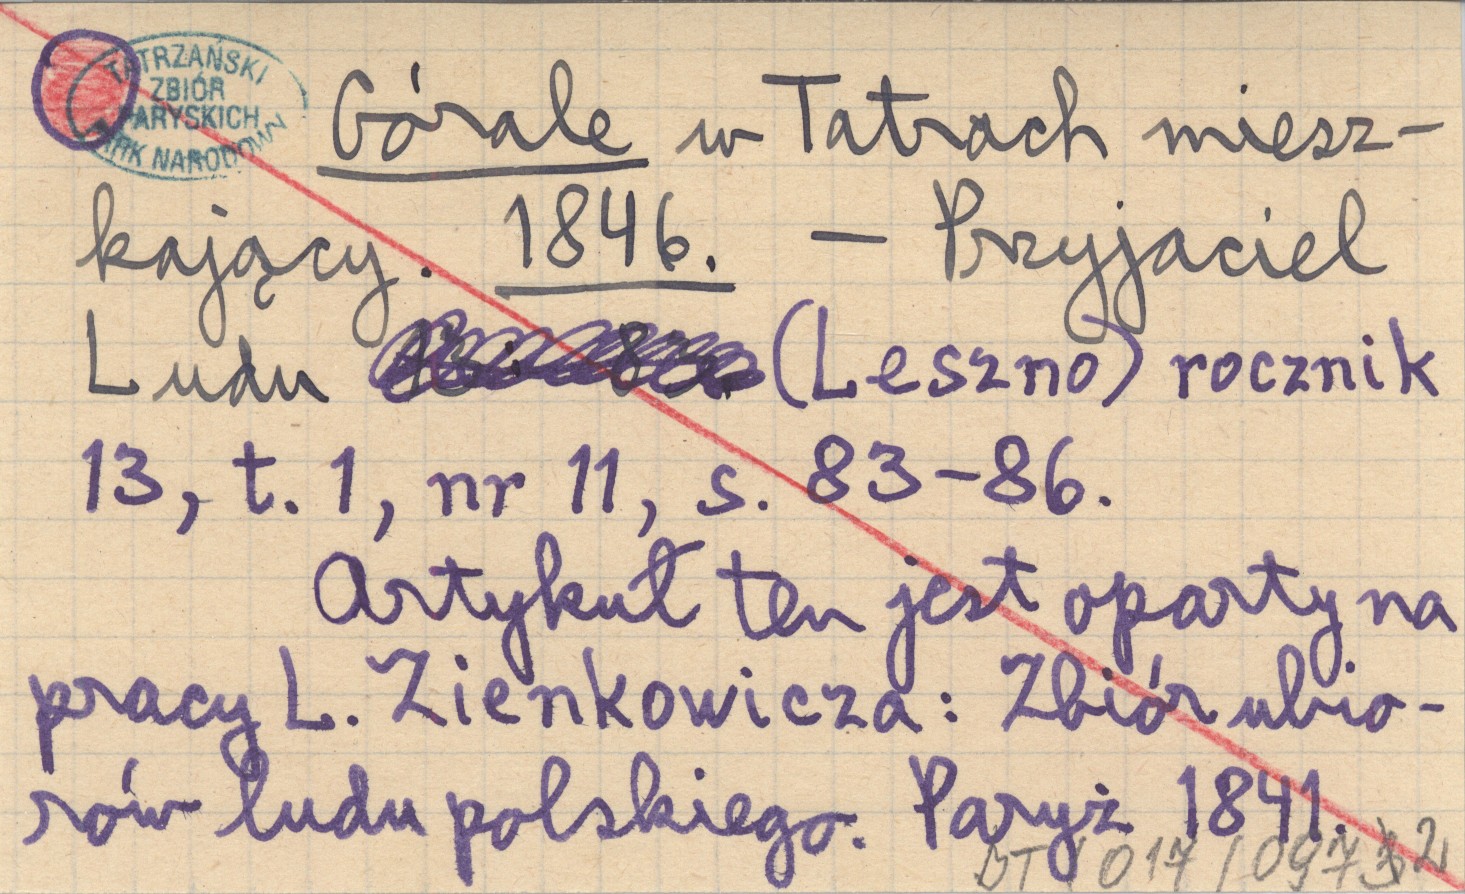 TATRZAŃSKI
ZBIÓR
PARYSKICH
PARK NARODOWY
Górale w Tatrach miesz-
kający. 1846. — Przyjaciel
Ludu (Leszno) rocznik
13, t. 1, nr 11, s. 83-86.
Artykuł ten jest oparty na
pracy L. Zienkowicza: Zbiór ubio-
rów ludu polskiego. Paryż 1841.
BT / 017 / 0973